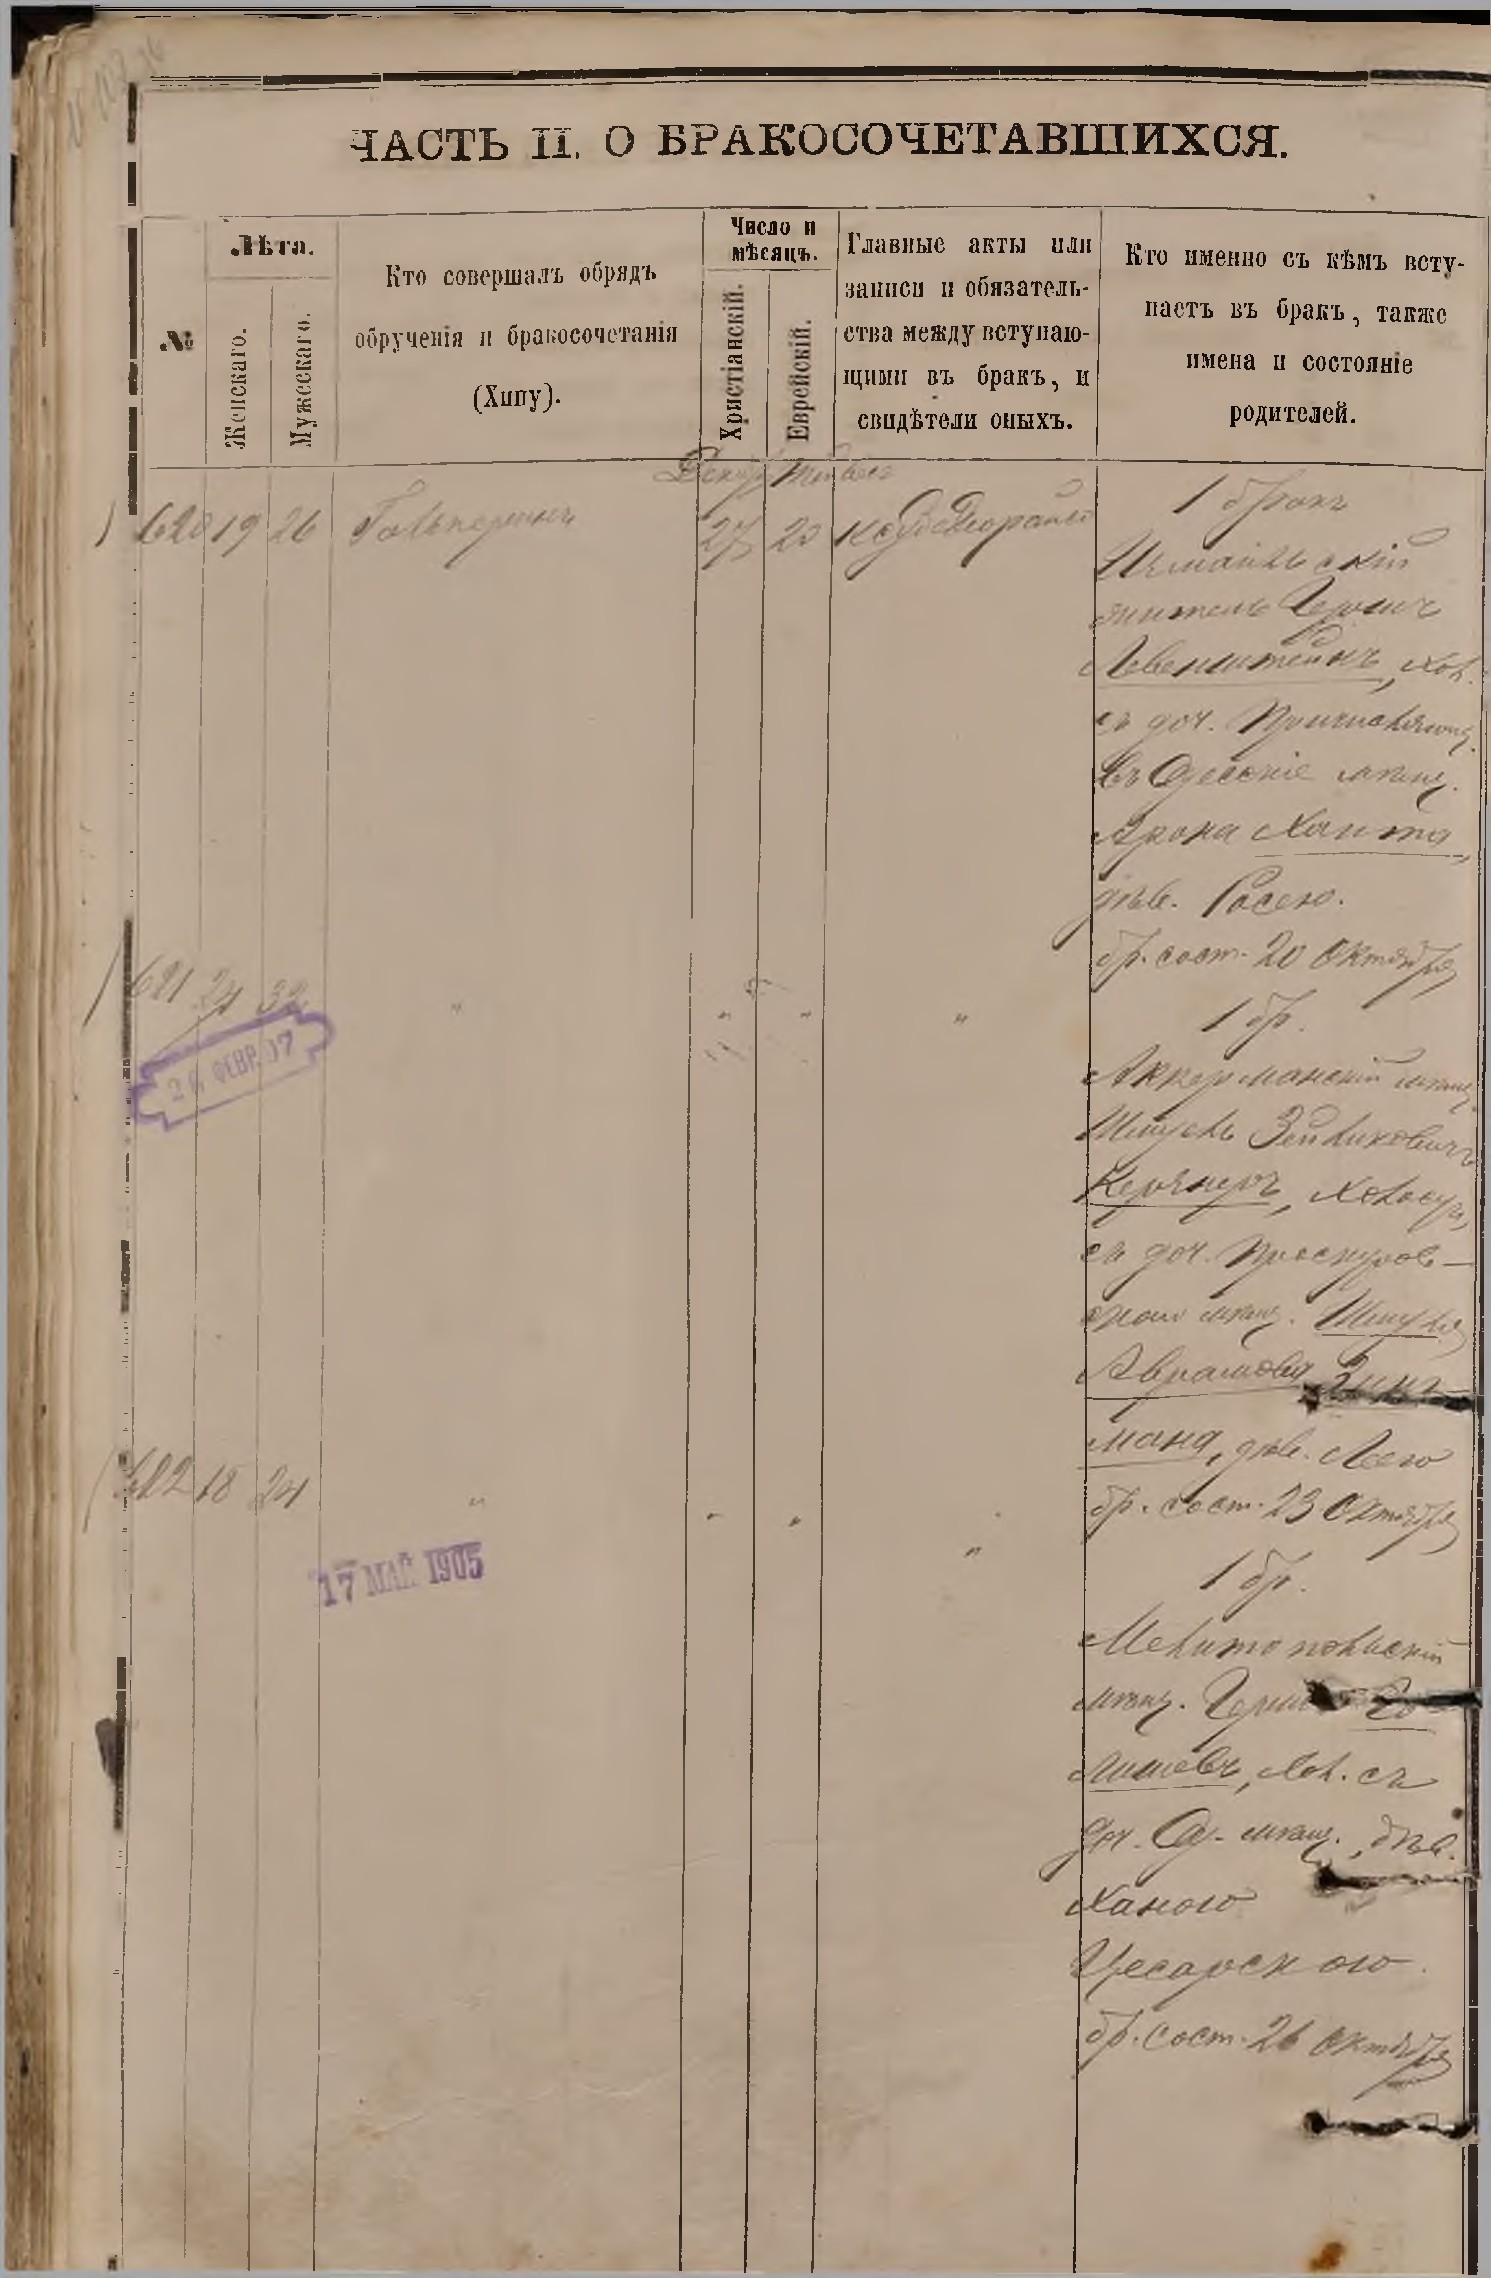 ЧАСТЬ II. О БРАКОСОЧЕТАВШИХСЯ.
№
Лѣта.
Женскаго.
Мужескаго.
Кто совершалъ обрядъ
обрученія и бракосочетанія
(Хипу).
Число и
мѣсяцъ.
Христіанскій.
Еврейскій.
Главные акты или
записи и обязатель-
ства между вступаю-
щими въ бракъ, и
свидѣтели оныхъ.
Кто именно съ кѣмъ всту-
паетъ въ бракъ, также
имена и состояніе
родителей.
620 19 26 Гальперинъ 27 20
1 бракъ
Измаильскій
житель Гершъ
Левенштейнъ, хол.
съ доч.
въ Одесскіе мѣщ.
Арона Хаита,
дѣв. Росею.
бр. сост. 20 Октября
621 24 32 " " " "
26 ФЕВР. 07
1 бр.
Аккерманскій мѣщ.
Шмуль Зейликовичъ
Керзнеръ, холост,
съ доч. Проскуров-
скаго мѣщ. Шмуля
Аврамова Зинг-
мана, дѣв. Леею
бр. сост. 23 Октября
622 18 24 " " " "
17 МАЙ 1905
1 бр.
Мелитопольскій
мѣщ. Го-
лишевъ, хол. съ
доч. Од. мѣщ., дѣв.
Ханою
Цесарскою.
бр. сост. 26 Октября